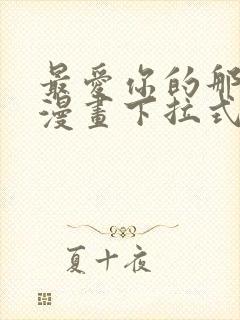 最愛你的那
漫畫下拉式
夏十夜